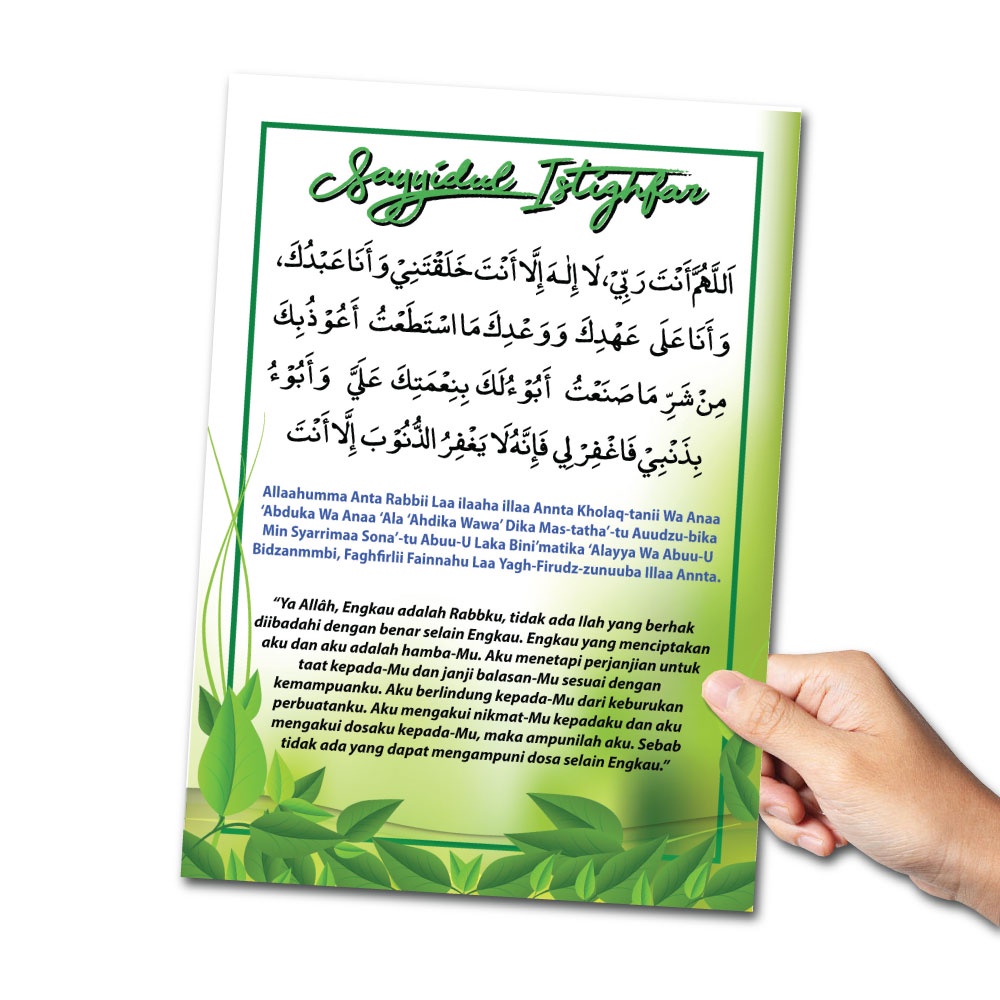 Sayyidul Istighfar
اَللَّهُمَّ أَنْتَ رَبِّيْ، لَا إِلٰـهَ إِلَّا أَنْتَ خَلَقْتَنِيْ وَأَنَا عَبْدُكَ،
وَأَنَا عَلَى عَهْدِكَ وَوَعْدِكَ مَا اسْتَطَعْتُ أَعُوْذُ بِكَ
مِنْ شَرِّ مَا صَنَعْتُ أَبُوْءُ لَكَ بِنِعْمَتِكَ عَلَيَّ وَأَبُوْءُ
بِذَنْبِيْ فَاغْفِرْ لِي فَإِنَّهُ لَا يَغْفِرُ الذُّنُوْبَ إِلَّا أَنْتَ
Allaahumma Anta Rabbii Laa ilaaha illaa Annta Kholaq-tanii Wa Anaa
‘Abduka Wa Anaa ‘Ala ‘Ahdika Wawa’ Dika Mas-tatha’-tu Auudzu-bika
Min Syarrimaa Sona’-tu Abuu-U Laka Bini’matika ‘Alayya Wa Abuu-U
Bidzanmmbi, Faghfirlii Fainnahu Laa Yagh-Firudz-zunuuba Illaa Annta.
“Ya Allâh, Engkau adalah Rabbku, tidak ada Ilah yang berhak
diibadahi dengan benar selain Engkau. Engkau yang menciptakan
aku dan aku adalah hamba-Mu. Aku menetapi perjanjian untuk
taat kepada-Mu dan janji balasan-Mu sesuai dengan
kemampuanku. Aku berlindung kepada-Mu dari keburukan
perbuatanku. Aku mengakui nikmat-Mu kepadaku dan aku
mengakui dosaku kepada-Mu, maka ampunilah aku. Sebab
tidak ada yang dapat mengampuni dosa selain Engkau.”